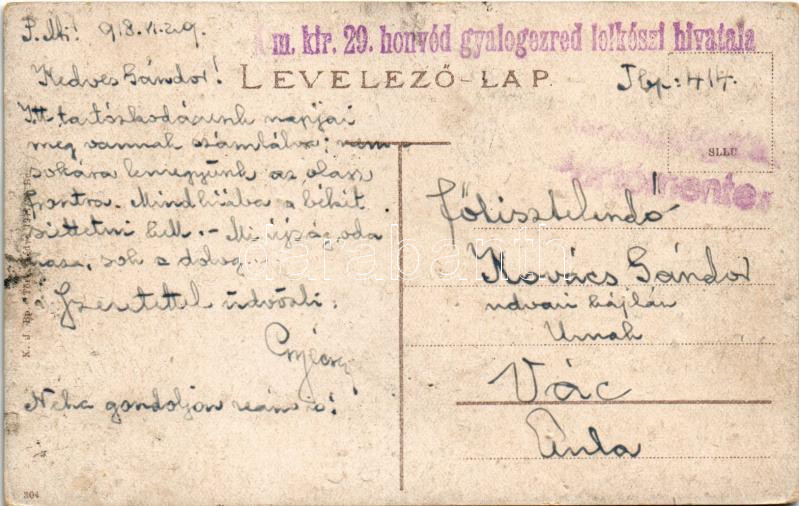 918. VI. 29.
m. kir. 29. honvéd gyalogezred lelkészi hivatala
LEVELEZŐ-LAP
Tbp: 414.
Kedves Sándor!
Itt tartózkodásunk napjai
meg vannak számlálva; nem
sokára lemegyünk az olasz
frontra. Mindhiába a békét
siettetni kell. - Mi újság oda
haza, sok a dolog.
Szeretettel üdvözli:
Néha gondoljon reám is!
SLLU
portómentes
Főtisztelendő
Kovács Sándor
udvari káplán
Urnak
Vác
Aula
darabanth
304